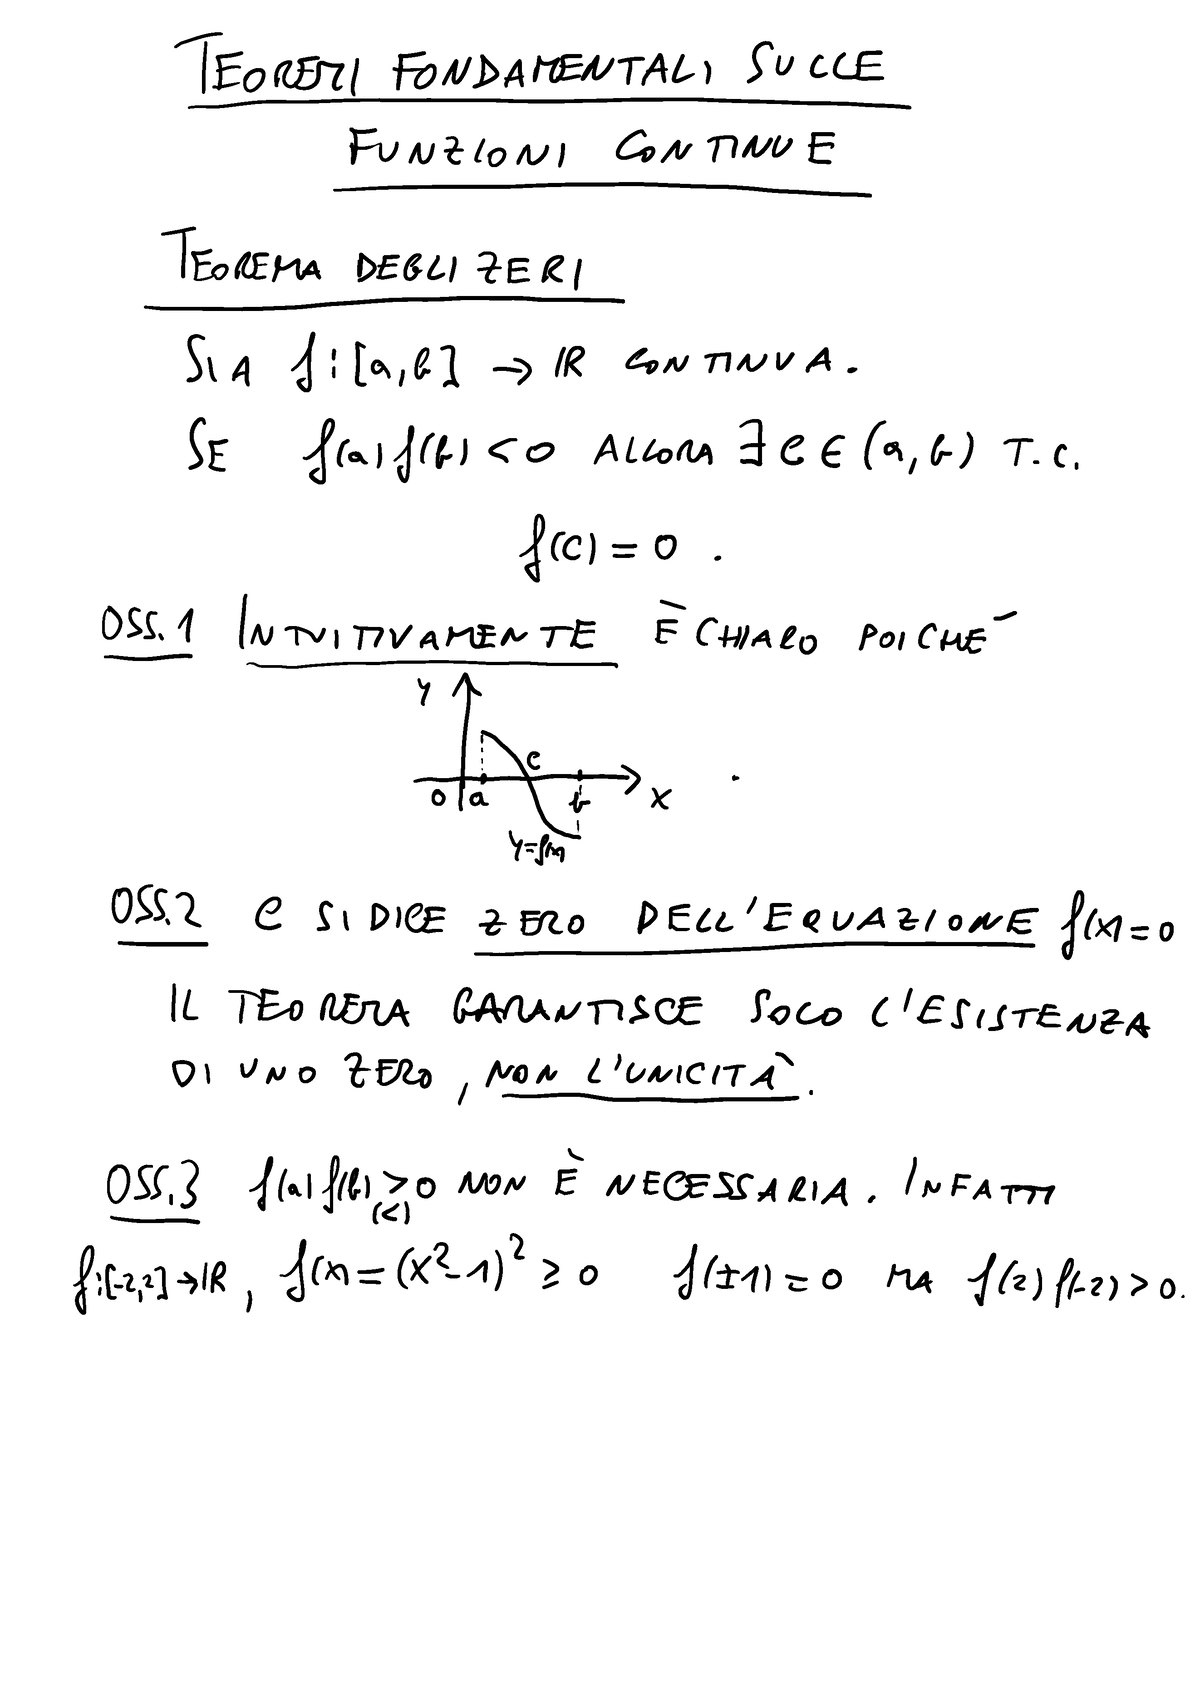 TEOREMI FONDAMENTALI SULLE
FUNZIONI CONTINUE
TEOREMA DEGLI ZERI
SIA f:[a,b] → IR CONTINUA.
SE f(a)f(b)<0 ALLORA ∃ c ∈ (a,b) T.C.
f(c)=0.
OSS.1 INTUITIVAMENTE È CHIARO POICHÉ
y
c
0 a b x
y=f(x)
OSS.2 c SI DICE ZERO DELL'EQUAZIONE f(x)=0
IL TEOREMA GARANTISCE SOLO L'ESISTENZA
DI UNO ZERO, NON L'UNICITÀ.
OSS.3 f(a)f(b)>0 NON È NECESSARIA. INFATTI
(<)
f:[-2,2]→IR, f(x)=(x²-1)²≥0 f(±1)=0 MA f(2)f(-2)>0.